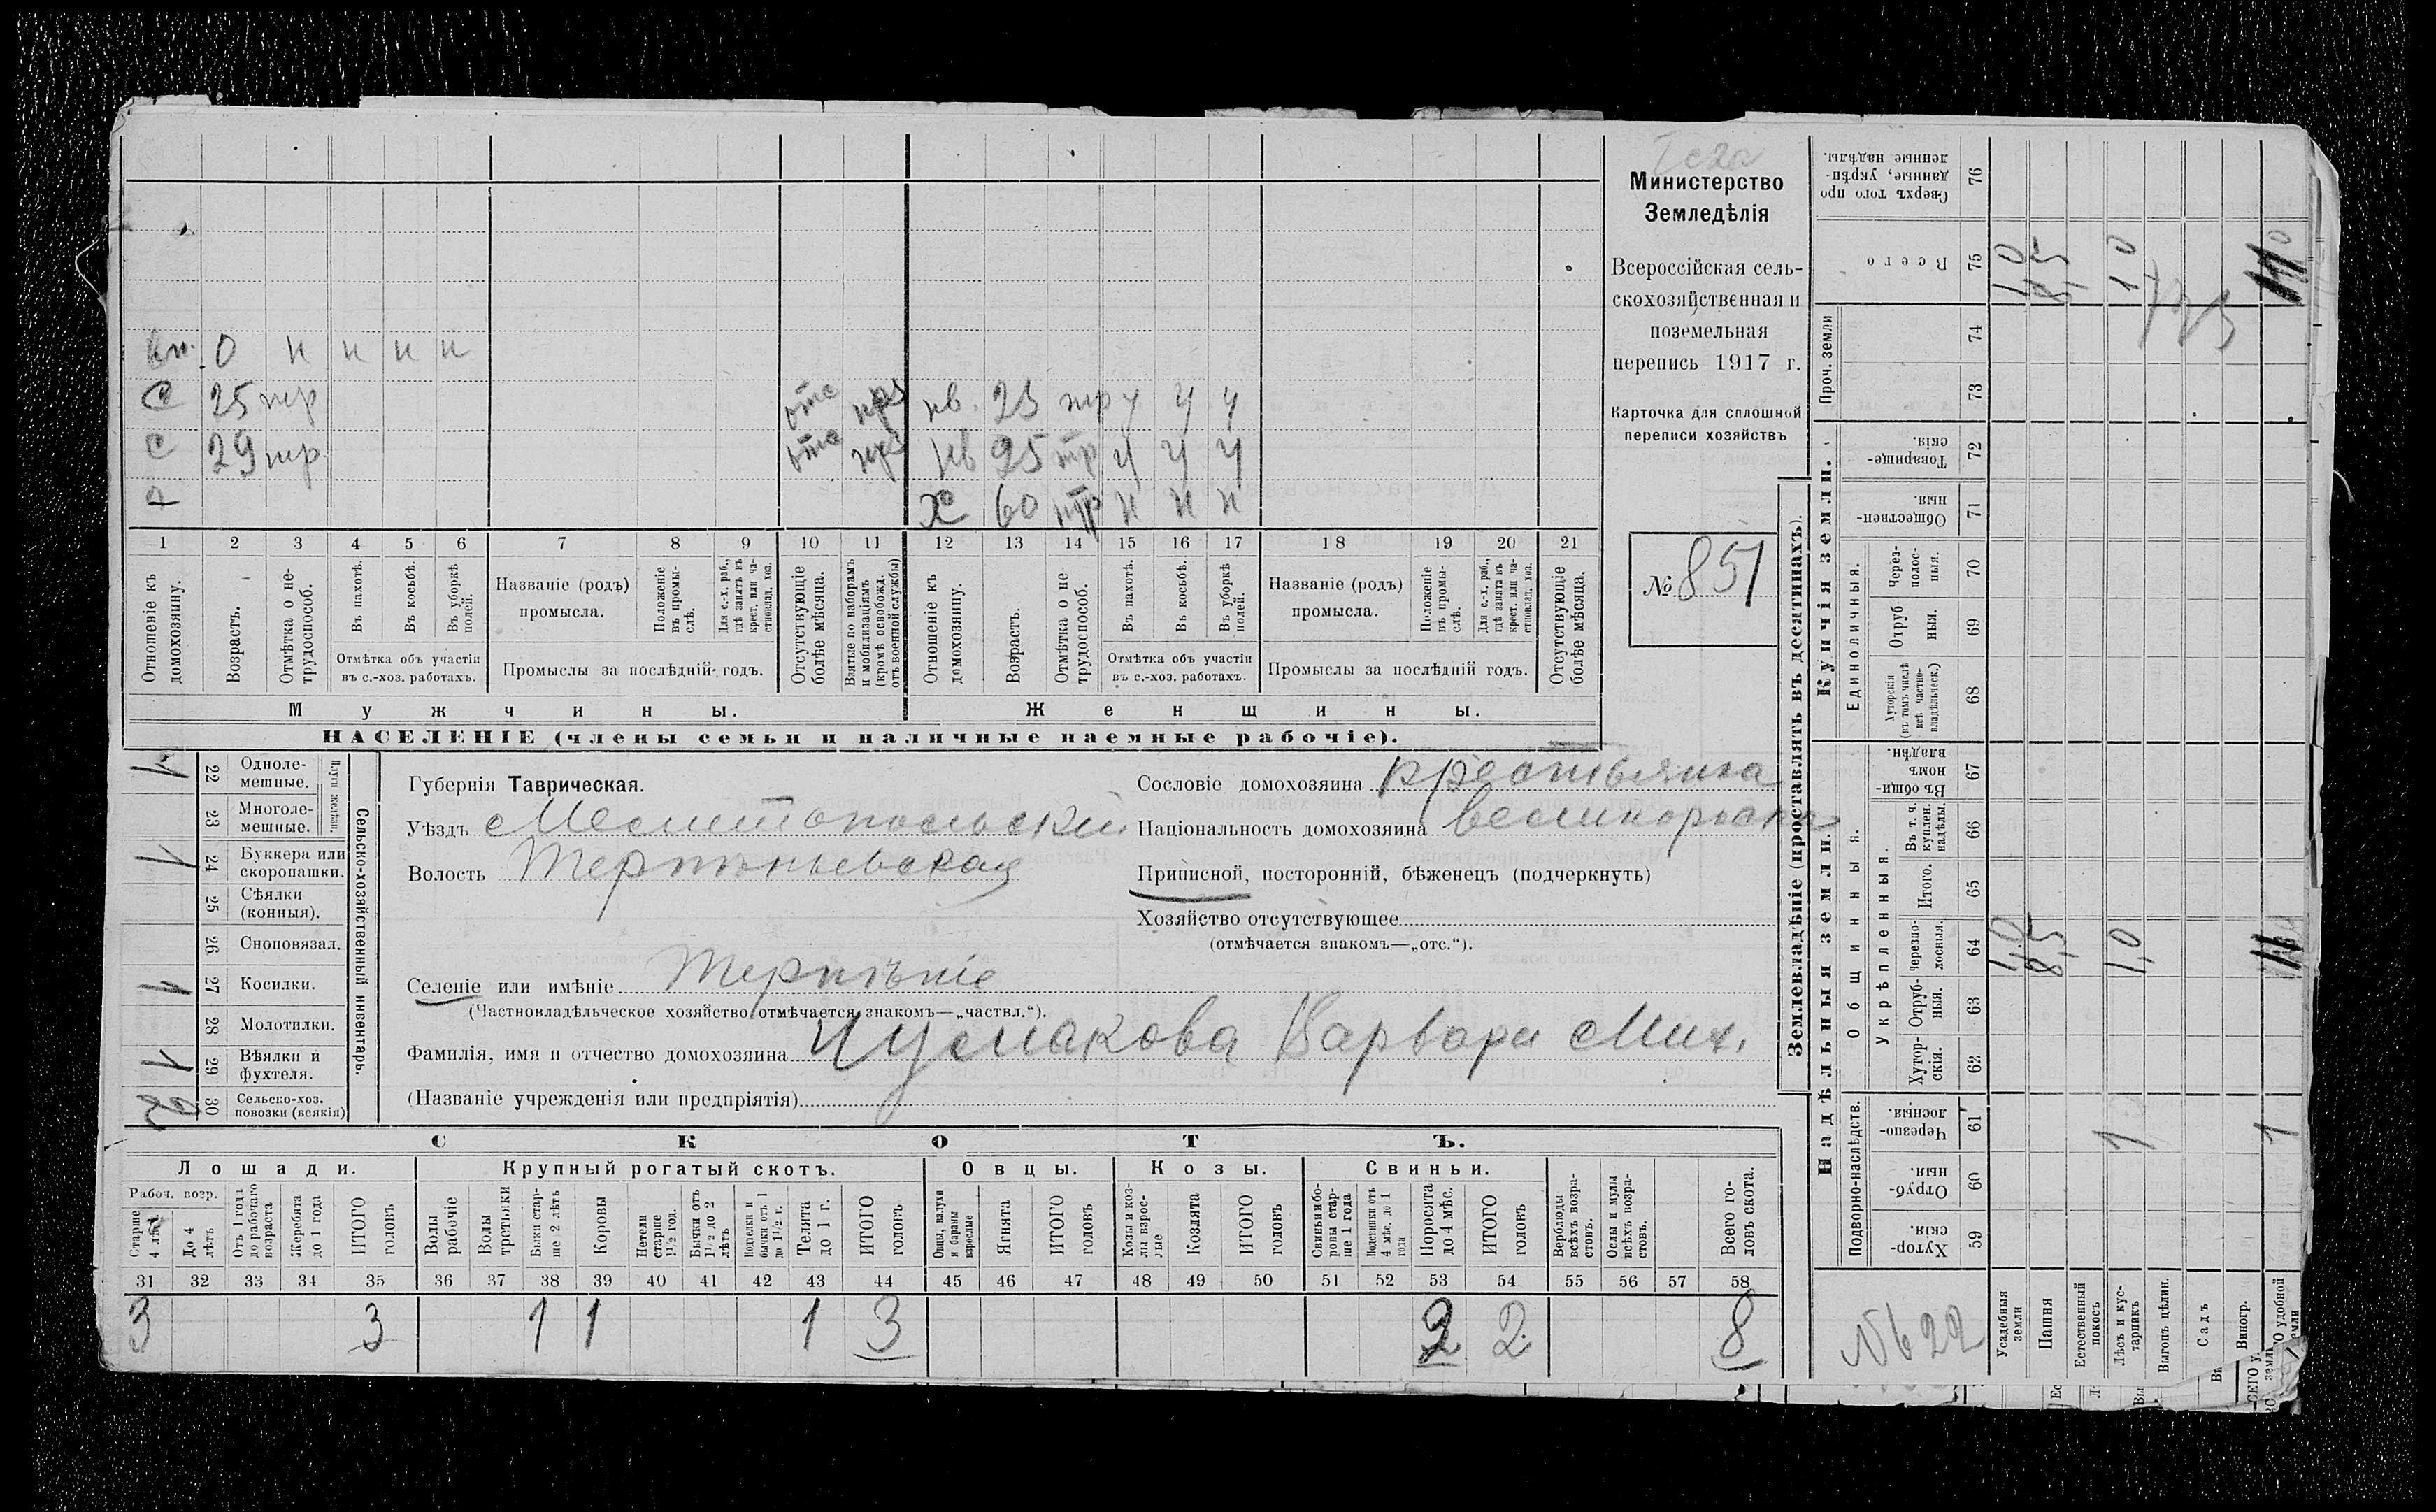 Министерство
Земледѣлія
Всероссійская сель-
скохозяйственная и
поземельная
перепись 1917 г.
Карточка для сплошной
переписи хозяйствъ
№ 851
вн. 0 н н н н
С 25 тр отс нв. 25 тр у у у
С 29 тр отс нв 25 тр у у у
х 60 н н н
1 2 3 4 5 6 7 8 9 10 11 12 13 14 15 16 17 18 19 20 21
Отношеніе къ домохозяину.
Возрастъ.
Отмѣтка о не-трудоспособ.
Въ пахотѣ.
Въ косьбѣ.
Въ уборкѣ полей.
Отмѣтка объ участіи
въ с.-хоз. работахъ.
Названіе (родъ)
промысла.
Положеніе въ промы-слѣ.
Для с.-х. раб., гдѣ занятъ въ крест. или ча-стновлад. хоз.
Промыслы за послѣдній годъ.
Отсутствующіе болѣе мѣсяца.
Взятые по наборамъ и мобилизаціямъ (кромѣ освобожд. отъ военной службы)
Отношеніе къ домохозяину.
Возрастъ.
Отмѣтка о не трудоспособ.
Въ пахотѣ.
Въ косьбѣ.
Въ уборкѣ полей.
Отмѣтка объ участіи
въ с.-хоз. работахъ.
Названіе (родъ)
промысла.
Положеніе въ промы-слѣ.
Для с.-х. раб., гдѣ занята въ крест. или ча-стновлад. хоз.
Промыслы за послѣдній годъ.
Отсутствующіе болѣе мѣсяца.
Мужчины.
Женщины.
НАСЕЛЕНІЕ (члены семьи и наличные наемные рабочіе).
Сельско-хозяйственный инвентарь.
Плуги желѣзн.
1 22 Одноле-мешные.
23 Многоле-мешные.
1 24 Буккера или скоропашки.
25 Сѣялки (конныя).
26 Сноповязал.
1 27 Косилки.
28 Молотилки.
1 29 Вѣялки и фухтеля.
2 30 Сельско-хоз. повозки (всякія)
Губернія Таврическая.
Уѣздъ Мелитопольскій
Волость Терпѣньевская
Селеніе или имѣніе Терпѣніе
(Частновладѣльческое хозяйство отмѣчается знакомъ—„частвл.“).
Фамилія, имя и отчество домохозяина Чумакова Варвара Мих.
(Названіе учрежденія или предпріятія)
Сословіе домохозяина крестьянка
Національность домохозяина великоросы
Приписной, посторонній, бѣженецъ (подчеркнуть)
Хозяйство отсутствующее
(отмѣчается знакомъ—„отс.“).
СКОТЪ.
Лошади.
Крупный рогатый скотъ.
Овцы.
Козы.
Свиньи.
Рабоч. возр.
Старше 4 лѣтъ
До 4 лѣтъ
Отъ 1 года до рабочаго возраста
Жеребята до 1 года
ИТОГО головъ
Волы рабочіе
Волы третьяки
Быки стар-ше 2 лѣтъ
Коровы
Нетели старше 1½ год.
Бычки отъ 1½ до 2 лѣтъ
Подтелки и бычки отъ 1 до 1½ г.
Телята до 1 г.
ИТОГО головъ
Овцы, валухи и бараны взрослые
Ягнята
ИТОГО головъ
Козы и коз-лы взрос-лые
Козлята
ИТОГО головъ
Свиньи и бо-ровы стар-ше 1 года
Подсвинки отъ 4 мѣс. до 1 года
Поросята до 4 мѣс.
ИТОГО головъ
Верблюды всѣхъ возра-стовъ.
Ослы и мулы всѣхъ возра-стовъ.
Всего го-ловъ скота.
31 32 33 34 35 36 37 38 39 40 41 42 43 44 45 46 47 48 49 50 51 52 53 54 55 56 57 58
3 3 1 1 1 3 2 2 8
Землевладѣніе (проставлять въ десятинахъ).
Купчія земли.
Надѣльныя земли.
Сверхъ того про-данные, укрѣп-ленные надѣлы. 76
Всего 75 1,0 8,5 1,0
Проч. земли 74 73
Товарище-скія. 72
Обществен-ныя. 71
Единоличныя.
Через-полос-ныя. 70
Отруб ныя. 69
Хуторскія (въ томъ числѣ всѣ частно-владѣльческ.) 68
Въ общи-номъ владѣн. 67
Общинныя.
Укрѣпленныя.
Въ т. ч. куплен. надѣлы. 66
Итого. 65
Черезпо-лосныя. 64 1,0 8,5 1,0 11
Отруб-ныя. 63
Хутор-скія. 62
Подворно-наслѣдств.
Черезпо-лосныя. 61 1 1
Отруб-ныя. 60
Хутор-скія. 59
№622
Усадебныя земли
Пашня
Естественный покосъ
Лѣсъ и кус-тарникъ
Выгонъ цѣлин.
Садъ
Виногр.